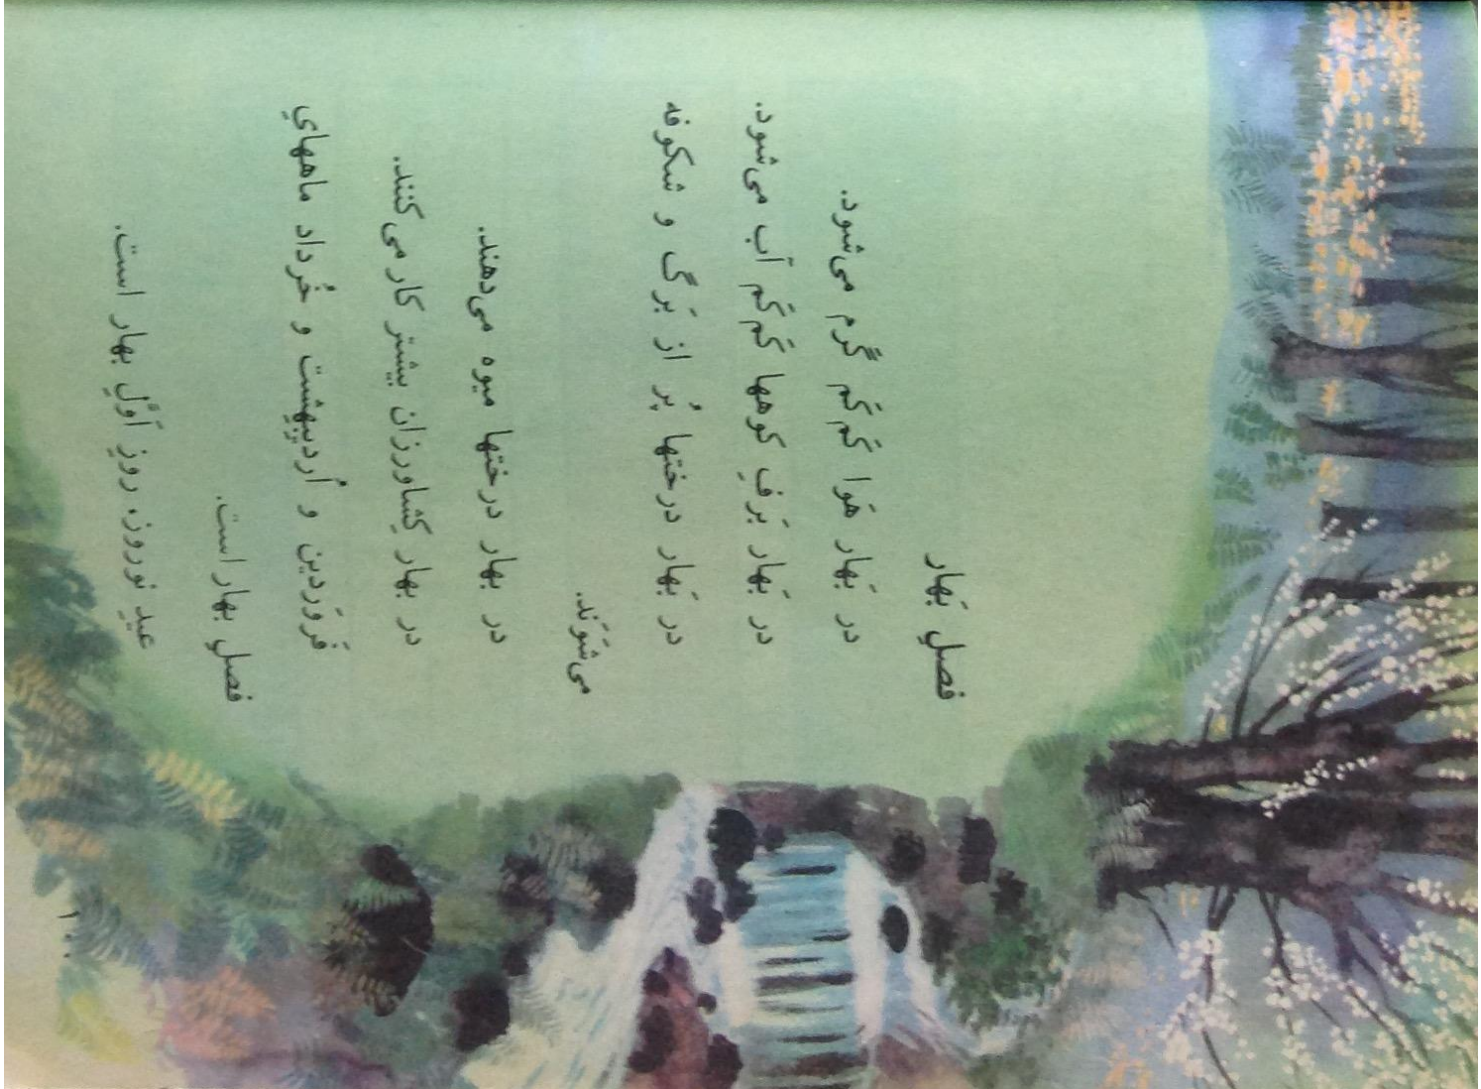 فصلِ بَهار
در بَهار هَوا کَم‌کَم گَرم می‌شود.
در بَهار بَرفِ کوهها کَم‌کَم آب می‌شود.
در بَهار درختها پُر از بَرگ و شکوفه
می‌شَوَند.
در بهار درختها میوه می‌دهند.
در بهار کِشاورزان بیشتر کار می‌کنند.
فَروَردین و اُردیبِهِشت و خُرداد ماههایِ
فصلِ بهار است.
عیدِ نوروز، روزِ اَوَّلِ بهار است.
۱۰۰